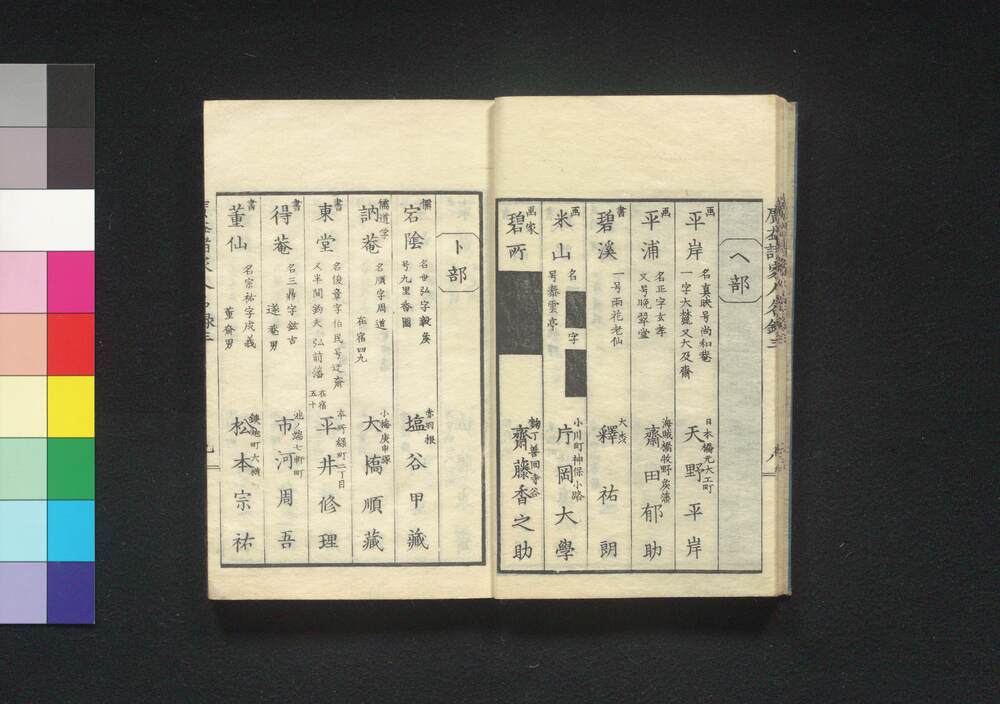 ヘ部
画
平岸
名真映号尚和菴
一字大麓又大及齋
日本橋元大工町
天野平岸
画
平浦
名正字玄孝
又号晩翠堂
海賊橋牧野矦藩
齋田郁助
書
碧溪
一号雨花老仙
釋祐朗
画
米山
名 字
号泰雲亭
小川町神保小路
片岡大學
画家
碧所
麹丁善国寺谷
齋藤香之助
廣益諸家人名録三
ト部
儒
宕陰
名世弘字毅矦
号九里香園
赤羽根
塩谷甲藏
儒道学
訥菴
名順字周道
在宿四九
小梅庚申塚
大橋順藏
書
東堂
名俊章字伯民号迂齋
又半間鈎夫弘前藩
在宿
五十
本所緑町二丁目
平井修理
書
得菴
名三鼎字鉉吉
遂菴男
池ノ端七軒町
市河周吾
書
董仙
名宗祐字成義
董齋男
松本宗祐